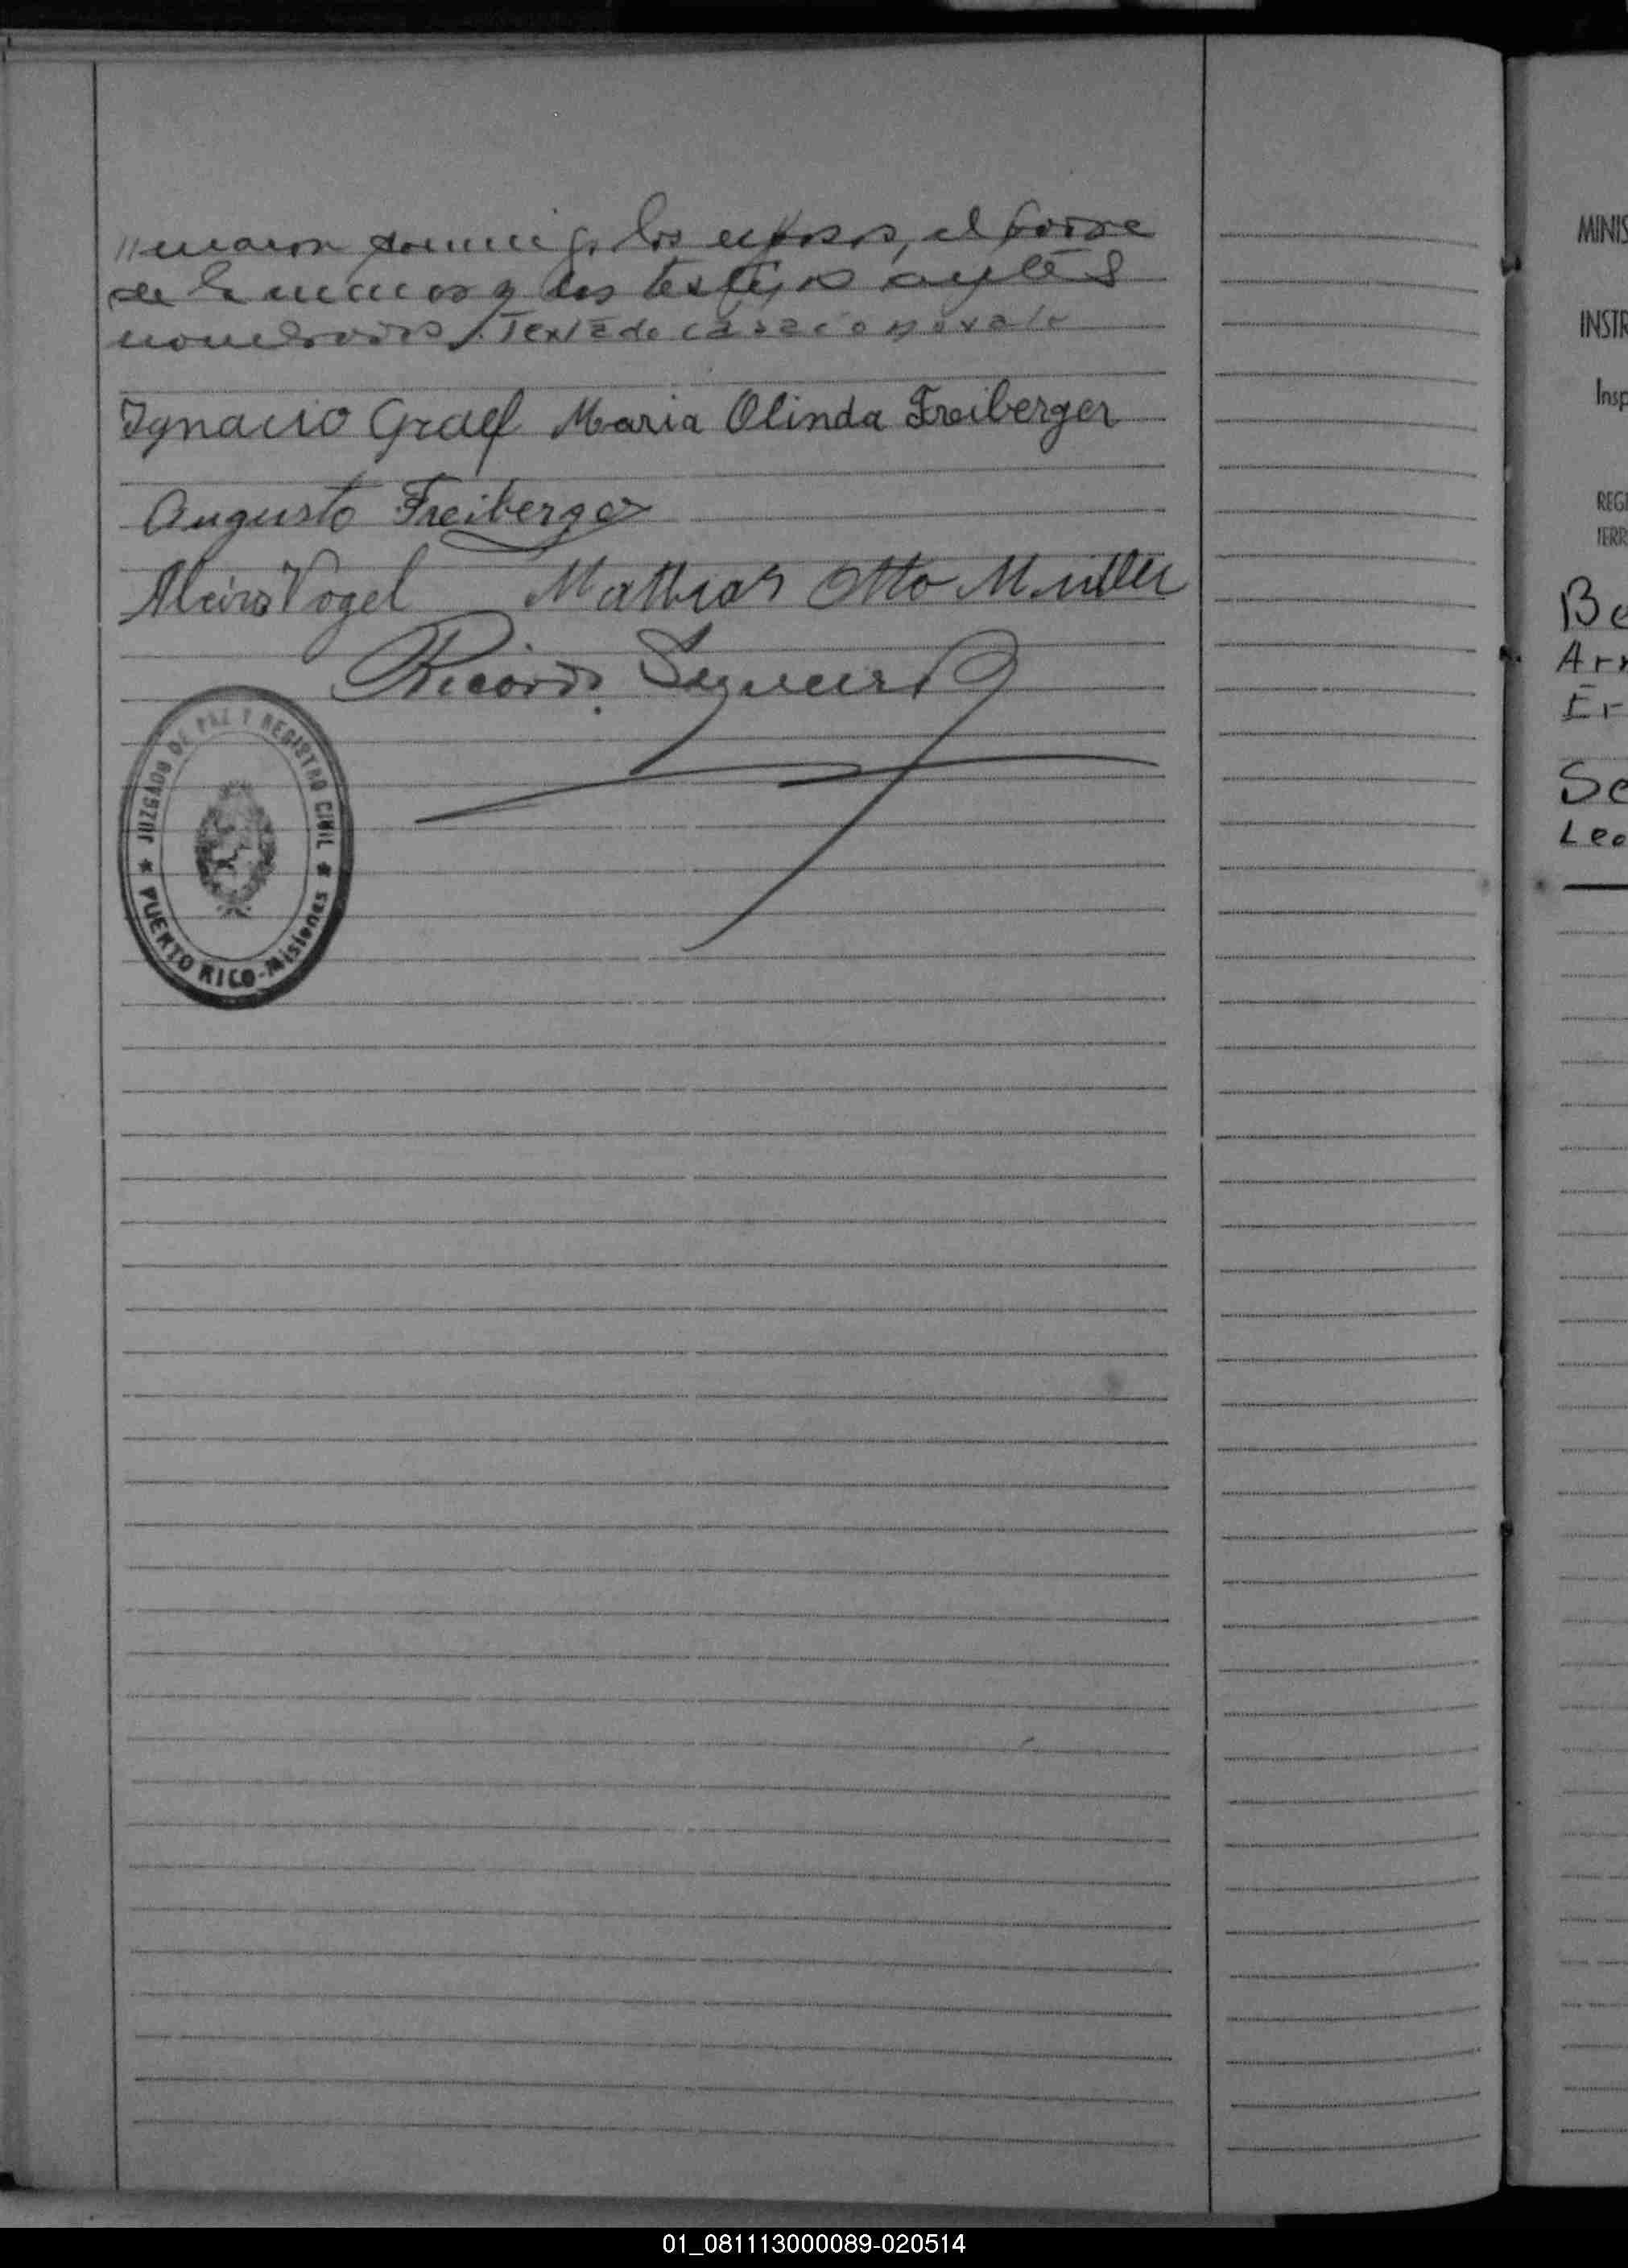 //maron conmigo los esposos, el padre
de la menor y los testigos antes
nombrados. Testado: casado no vale
Ignacio Graef Maria Olinda Freiberger
Augusto Freiberger
Vogel Mathias Otto Müller
Ricardo
JUZGADO DE PAZ Y REGISTRO CIVIL
PUERTO RICO-Misiones
MINIS
INSTR
Insp
REGI
TERR
Be
Arn
Er
Se
Leo
01_081113000089-020514